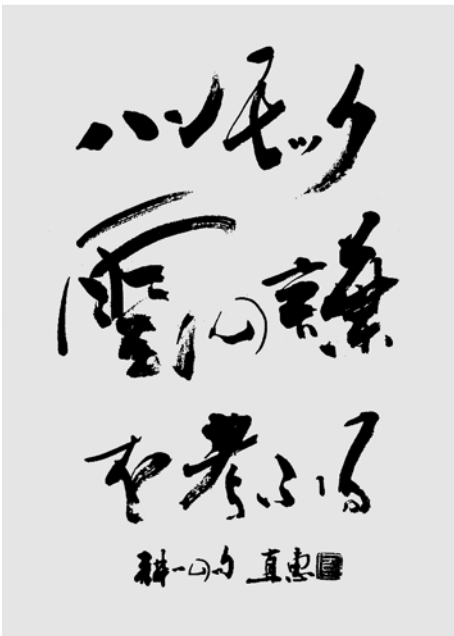 ハンモック
の言葉
を考ふる
耕一の句 直惠